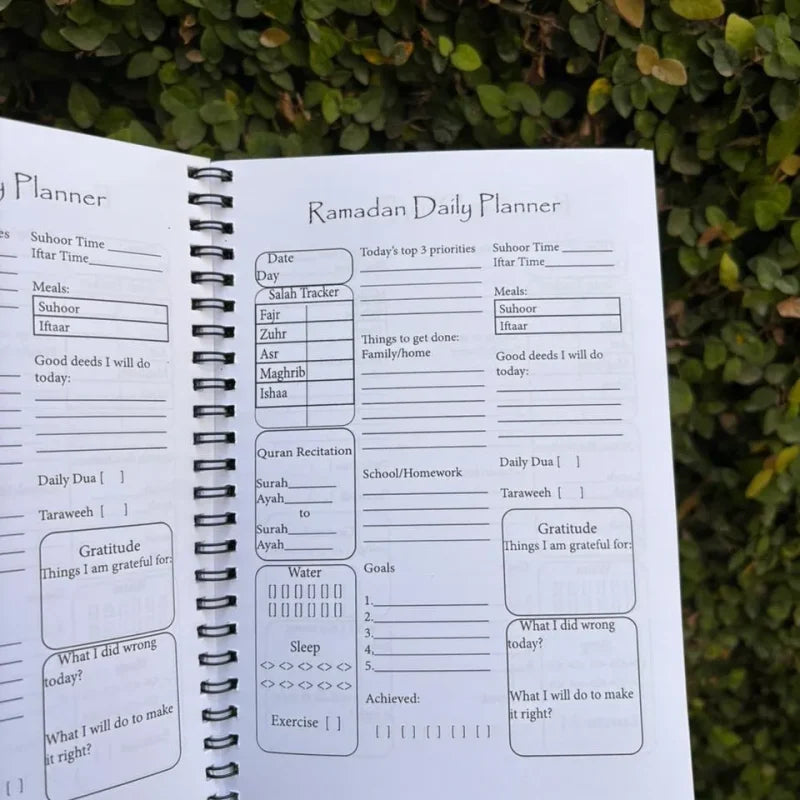 y Planner
es
Suhoor Time
Iftar Time
Meals:
Suhoor
Iftaar
Good deeds I will do
today:
Daily Dua [ ]
Taraweeh [ ]
Gratitude
Things I am grateful for:
What I did wrong
today?
What I will do to make
it right?
[ ]
Ramadan Daily Planner
Date
Day
Salah Tracker
Fajr
Zuhr
Asr
Maghrib
Ishaa
Quran Recitation
Surah
Ayah
to
Surah
Ayah
Water
[] [] [] [] [] []
[] [] [] [] [] []
Sleep
<> <> <> <> <>
<> <> <> <> <>
Exercise [ ]
Today's top 3 priorities
Things to get done:
Family/home
School/Homework
Goals
1.
2.
3.
4.
5.
Achieved:
[ ] [ ] [ ] [ ] [ ]
Suhoor Time
Iftar Time
Meals:
Suhoor
Iftaar
Good deeds I will do
today:
Daily Dua [ ]
Taraweeh [ ]
Gratitude
Things I am grateful for:
What I did wrong
today?
What I will do to make
it right?